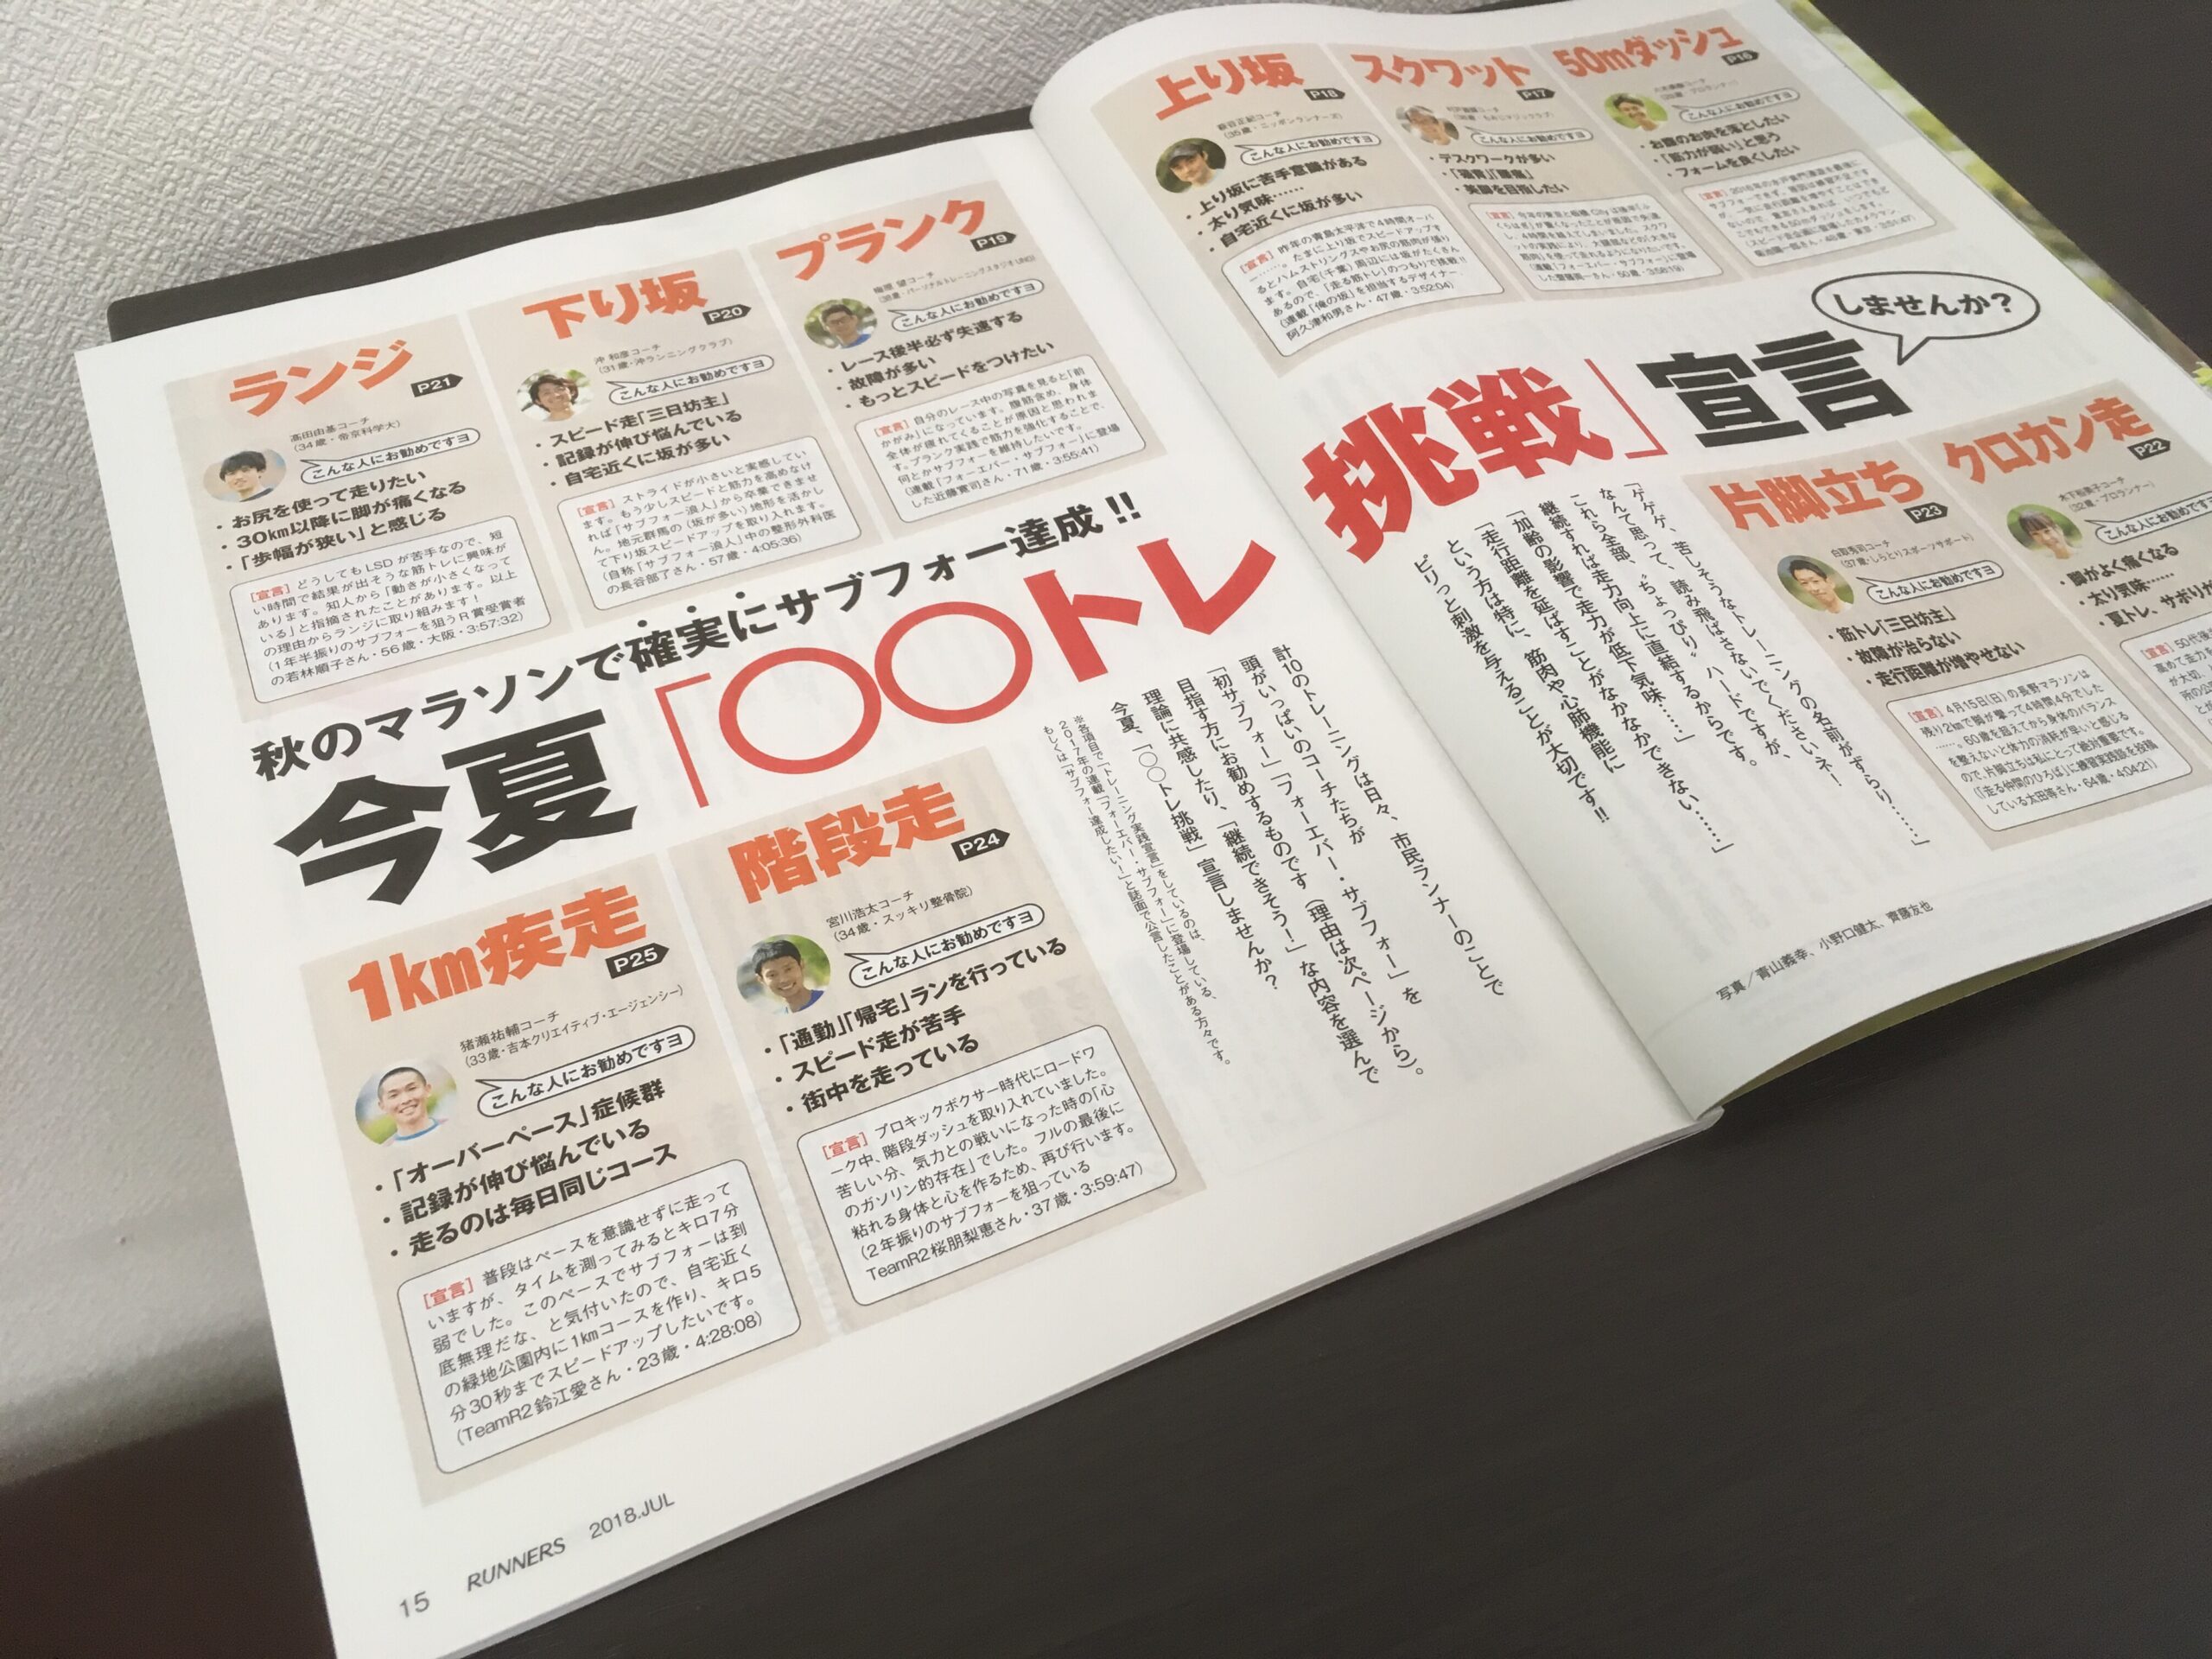 50mダッシュ
P16
こんな人にお勧めですヨ
・お腹のお肉を落としたい
・「筋力が弱い」と思う
・フォームを良くしたい
スクワット
P17
こんな人にお勧めですヨ
・デスクワークが多い
・美脚を目指したい
上り坂
P18
(35歳・ニッポンランナーズ)
こんな人にお勧めですヨ
・上り坂に苦手意識がある
・太り気味……
・自宅近くに坂が多い
[宣言] 昨年の青島太平洋で4時間オーバ
ー……。たまに上り坂でスピードアップす
るとハムストリングスやお尻の筋肉が張り
ます。自宅(千葉)周辺には坂がたくさん
あるので、「走る筋トレ」のつもりで挑戦!!
(連載「俺の坂」を担当するデザイナー、
阿久津和男さん・47歳・3:52:04)
プランク
P19
こんな人にお勧めですヨ
・レース後半必ず失速する
・故障が多い
・もっとスピードをつけたい
[宣言] 自分のレース中の写真を見ると「前
かがみ」になっています。腹筋含め、身体
全体が疲れてくることが原因と思われま
す。プランク実践で筋力を強化することで、
何とかサブフォーを維持したいです。
(連載「フォーエバー・サブフォー」に登場
した近藤寛司さん・71歳・3:55:41)
下り坂
P20
沖 和彦コーチ
(31歳・沖ランニングクラブ)
こんな人にお勧めですヨ
・スピード走「三日坊主」
・記録が伸び悩んでいる
・自宅近くに坂が多い
[宣言] ストライドが小さいと実感してい
ます。もう少しスピードと筋力を高めなけ
れば「サブフォー浪人」から卒業できませ
ん。地元群馬の(坂が多い)地形を活かし
て下り坂スピードアップを取り入れます。
(自称「サブフォー浪人」中の整形外科医
の長谷部了さん・57歳・4:05:36)
ランジ
P21
髙田由基コーチ
(34歳・帝京科学大)
こんな人にお勧めですヨ
・お尻を使って走りたい
・30km以降に脚が痛くなる
・「歩幅が狭い」と感じる
[宣言] どうしてもLSDが苦手なので、短
い時間で結果が出そうな筋トレに興味が
あります。知人から「動きが小さくなって
いる」と指摘されたことがあります。以上
の理由からランジに取り組みます!
(1年半振りのサブフォーを狙うR賞受賞者
の若林順子さん・56歳・大阪・3:57:32)
秋のマラソンで確実にサブフォー達成!!
今夏「〇〇トレ挑戦」宣言
しませんか?
クロカン走
P22
こんな人にお勧めですヨ
・脚がよく痛くなる
・太り気味……
片脚立ち
P23
白取秀司コーチ
(37歳・しらとりスポーツサポート)
こんな人にお勧めですヨ
・筋トレ「三日坊主」
・故障が治らない
・走行距離が増やせない
[宣言] 4月15日(日)の長野マラソンは
残り2kmで脚が攣って4時間4分でした
……。60歳を超えてから身体のバランス
を整えないと体力の消耗が早いと感じる
ので、片脚立ちは私にとって絶対重要です。
(「走る仲間のひろば」に練習実践談を投稿
している太田等さん・64歳・4:04:21)
「ゲゲゲ、苦しそうなトレーニングの名前がずらり……」
なんて思って、読み飛ばさないでくださいネ!
これら全部、“ちょっぴり”ハードですが、
継続すれば走力向上に直結するからです。
「加齢の影響で走力が低下気味……」
「走行距離を延ばすことがなかなかできない……」
という方は特に、筋肉や心肺機能に
ピリっと刺激を与えることが大切です!!
計10のトレーニングは日々、市民ランナーのことで
頭がいっぱいのコーチたちが
「初サブフォー」「フォーエバー・サブフォー」を
目指す方にお勧めするものです(理由は次ページから)。
理論に共感したり、「継続できそう!」な内容を選んで
今夏、「〇〇トレ挑戦」宣言しませんか?
※各項目で「トレーニング実践宣言」をしているのは、
2017年の連載「フォーエバー・サブフォー」に登場している、
もしくは「サブフォー達成したい!」と誌面で公言したことがある方々です。
階段走
P24
宮川浩太コーチ
(34歳・スッキリ整骨院)
こんな人にお勧めですヨ
・「通勤」「帰宅」ランを行っている
・スピード走が苦手
・街中を走っている
[宣言] プロキックボクサー時代にロードワ
ーク中、階段ダッシュを取り入れていました。
苦しい分、気力との戦いになった時の「心
のガソリン的存在」でした。フルの最後に
粘れる身体と心を作るため、再び行います。
(2年振りのサブフォーを狙っている
TeamR2桜朋梨恵さん・37歳・3:59:47)
1km疾走
P25
猪瀬祐輔コーチ
(33歳・吉本クリエイティブ・エージェンシー)
こんな人にお勧めですヨ
・「オーバーペース」症候群
・記録が伸び悩んでいる
・走るのは毎日同じコース
[宣言] 普段はペースを意識せずに走って
いますが、タイムを測ってみるとキロ7分
弱でした。このペースでサブフォーは到
底無理だな、と気付いたので、自宅近く
の緑地公園内に1kmコースを作り、キロ5
分30秒までスピードアップしたいです。
(TeamR2鈴江愛さん・23歳・4:28:08)
写真／青山義幸、小野口健太、齊藤友也
15 RUNNERS 2018.JUL